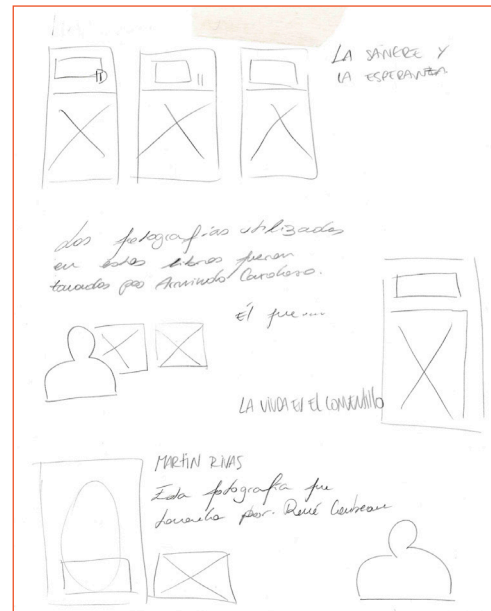 LA SANGRE Y
LA ESPERANZA
Las fotografías utilizadas
en estos libros fueron
tomadas por Armindo Cardoso.
Él fue....
LA VIUDA EN EL CONVENTILLO
MARTIN RIVAS
Esta fotografía fue
tomada por. René